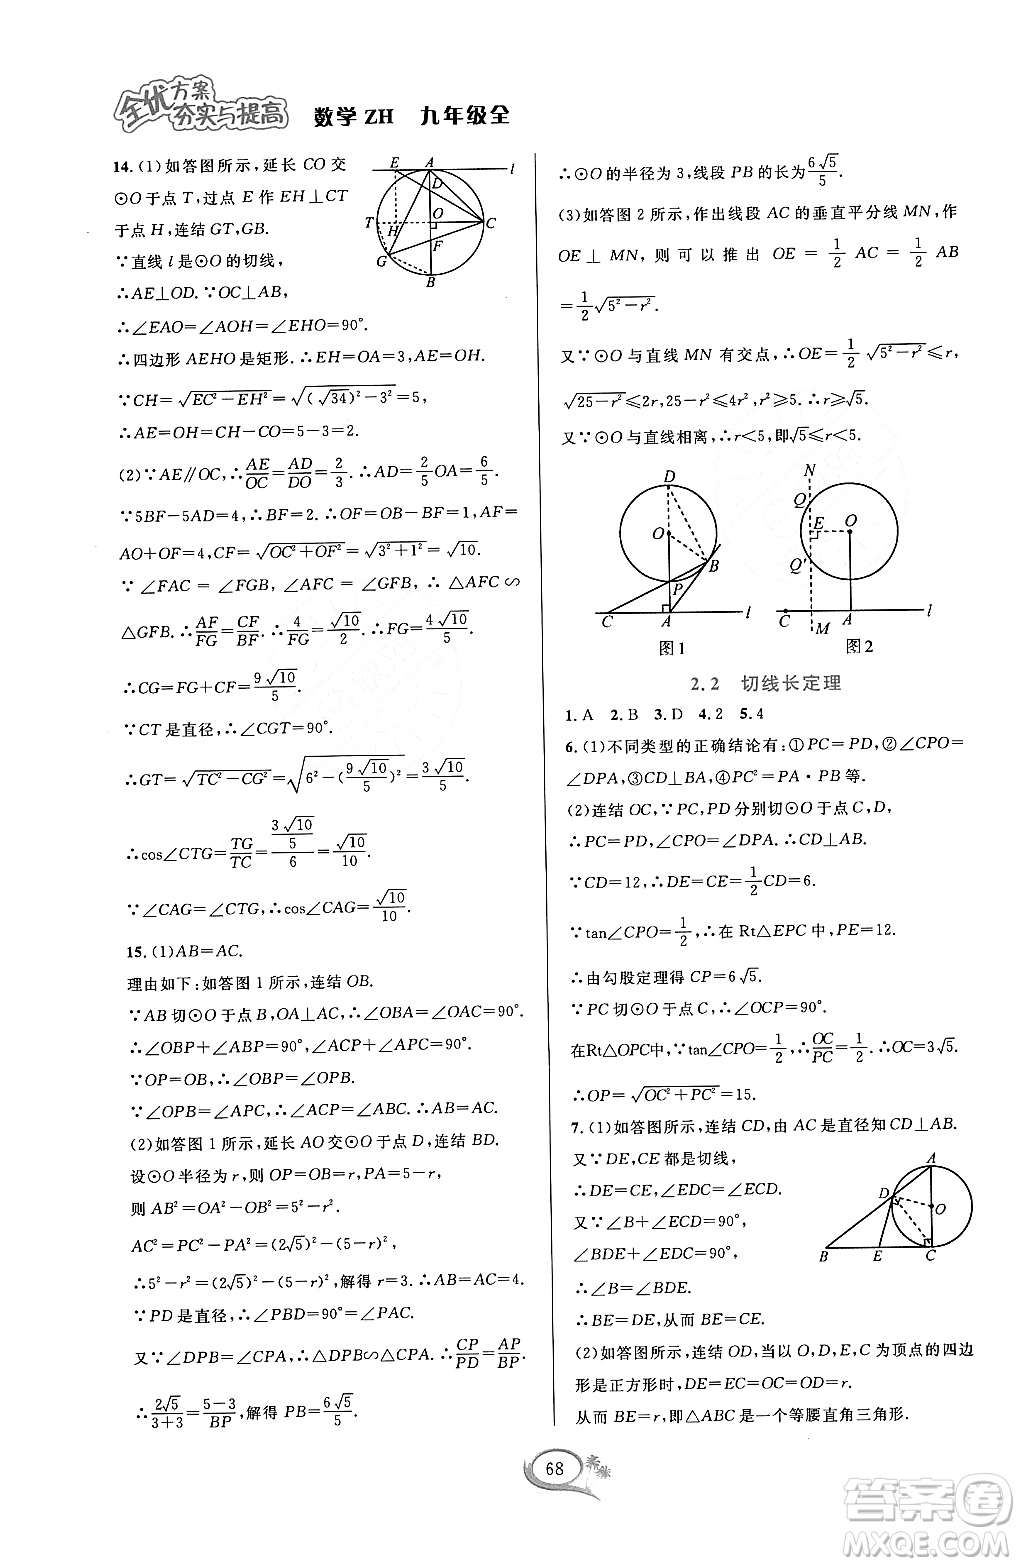 全优方案
夯实与提高 数学ZH 九年级全
14.(1)如答图所示,延长 CO 交
⊙O 于点 T,过点 E 作 EH⊥CT
于点 H,连结 GT,GB.
∵直线 l 是⊙O 的切线,
∴AE⊥OD.∵OC⊥AB,
∴∠EAO=∠AOH=∠EHO=90°.
∴四边形 AEHO 是矩形.∴EH=OA=3,AE=OH.
∵CH=√(EC²-EH²)=√((√34)²-3²)=5,
∴AE=OH=CH-CO=5-3=2.
(2)∵AE∥OC,∴AE/OC=AD/DO=2/3.∴AD=2/5OA=6/5.
∵5BF-5AD=4,∴BF=2.∴OF=OB-BF=1,AF=
AO+OF=4,CF=√(OC²+OF²)=√(3²+1²)=√10.
∵∠FAC=∠FGB,∠AFC=∠GFB,∴△AFC∽
△GFB.∴AF/FG=CF/BF.∴4/FG=√10/2.∴FG=4√10/5.
∴CG=FG+CF=9√10/5.
∵CT 是直径,∴∠CGT=90°.
∴GT=√(TC²-CG²)=√(6²-(9√10/5)²)=3√10/5.
∴cos∠CTG=TG/TC=(3√10/5)/6=√10/10.
∵∠CAG=∠CTG,∴cos∠CAG=√10/10.
15.(1)AB=AC.
理由如下:如答图 1 所示,连结 OB.
∵AB 切⊙O 于点 B,OA⊥AC,∴∠OBA=∠OAC=90°.
∴∠OBP+∠ABP=90°,∠ACP+∠APC=90°.
∵OP=OB,∴∠OBP=∠OPB.
∵∠OPB=∠APC,∴∠ACP=∠ABP.∴AB=AC.
(2)如答图 1 所示,延长 AO 交⊙O 于点 D,连结 BD.
设⊙O 半径为 r,则 OP=OB=r,PA=5-r,
则 AB²=OA²-OB²=5²-r².
AC²=PC²-PA²=(2√5)²-(5-r)²,
∴5²-r²=(2√5)²-(5-r)²,解得 r=3.∴AB=AC=4.
∵PD 是直径,∴∠PBD=90°=∠PAC.
又∵∠DPB=∠CPA,∴△DPB∽△CPA.∴CP/PD=AP/BP.
∴2√5/(3+3)=(5-3)/BP,解得 PB=6√5/5.
∴⊙O 的半径为 3,线段 PB 的长为6√5/5.
(3)如答图 2 所示,作出线段 AC 的垂直平分线 MN,作
OE⊥MN,则可以推出 OE=1/2AC=1/2AB
=1/2√(5²-r²).
又∵⊙O 与直线 MN 有交点,∴OE=1/2√(5²-r²)≤r,
√(25-r²)≤2r,25-r²≤4r²,r²≥5.∴r≥√5.
又∵⊙O 与直线相离,∴r<5,即√5≤r<5.
图1 图2
2.2 切线长定理
1.A 2.B 3.D 4.2 5.4
6.(1)不同类型的正确结论有:①PC=PD,②∠CPO=
∠DPA,③CD⊥BA,④PC²=PA·PB 等.
(2)连结 OC,∵PC,PD 分别切⊙O 于点 C,D,
∴PC=PD,∠CPO=∠DPA.∴CD⊥AB.
∵CD=12,∴DE=CE=1/2CD=6.
∵tan∠CPO=1/2,∴在 Rt△EPC 中,PE=12.
∴由勾股定理得 CP=6√5.
∵PC 切⊙O 于点 C,∴∠OCP=90°.
在Rt△OPC中,∵tan∠CPO=1/2,∴OC/PC=1/2.∴OC=3√5.
∴OP=√(OC²+PC²)=15.
7.(1)如答图所示,连结 CD,由 AC 是直径知 CD⊥AB.
又∵DE,CE 都是切线,
∴DE=CE,∠EDC=∠ECD.
又∵∠B+∠ECD=90°,
∠BDE+∠EDC=90°,
∴∠B=∠BDE.
∴BE=DE.从而 BE=CE.
(2)如答图所示,连结 OD,当以 O,D,E,C 为顶点的四边
形是正方形时,DE=EC=OC=OD=r.
从而 BE=r,即△ABC 是一个等腰直角三角形.
68
答案圈
MXQE.COM